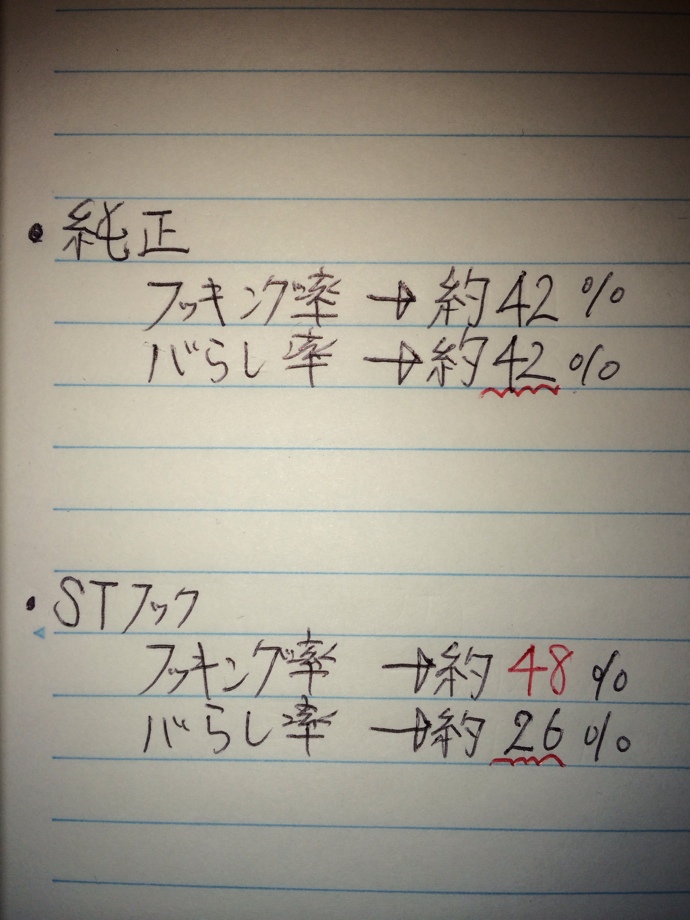 ・純正
フッキング率→約42%
バらし率→約42%
・STフック
フッキング率→約48%
バらし率→約26%